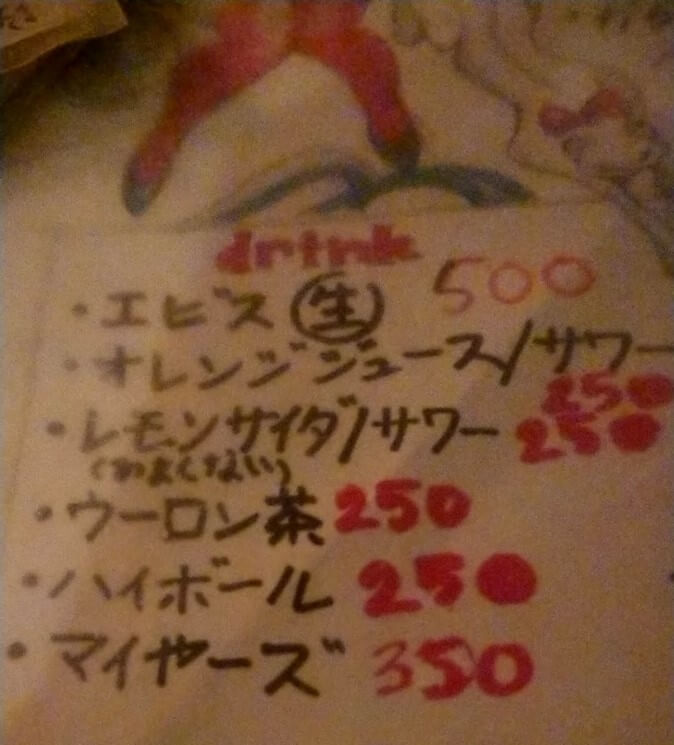 drink
・エビス 生 500
・オレンジジュース/サワー
250
・レモンサイダ/サワー 250
・ウーロン茶 250
・ハイボール 250
・マイヤーズ 350